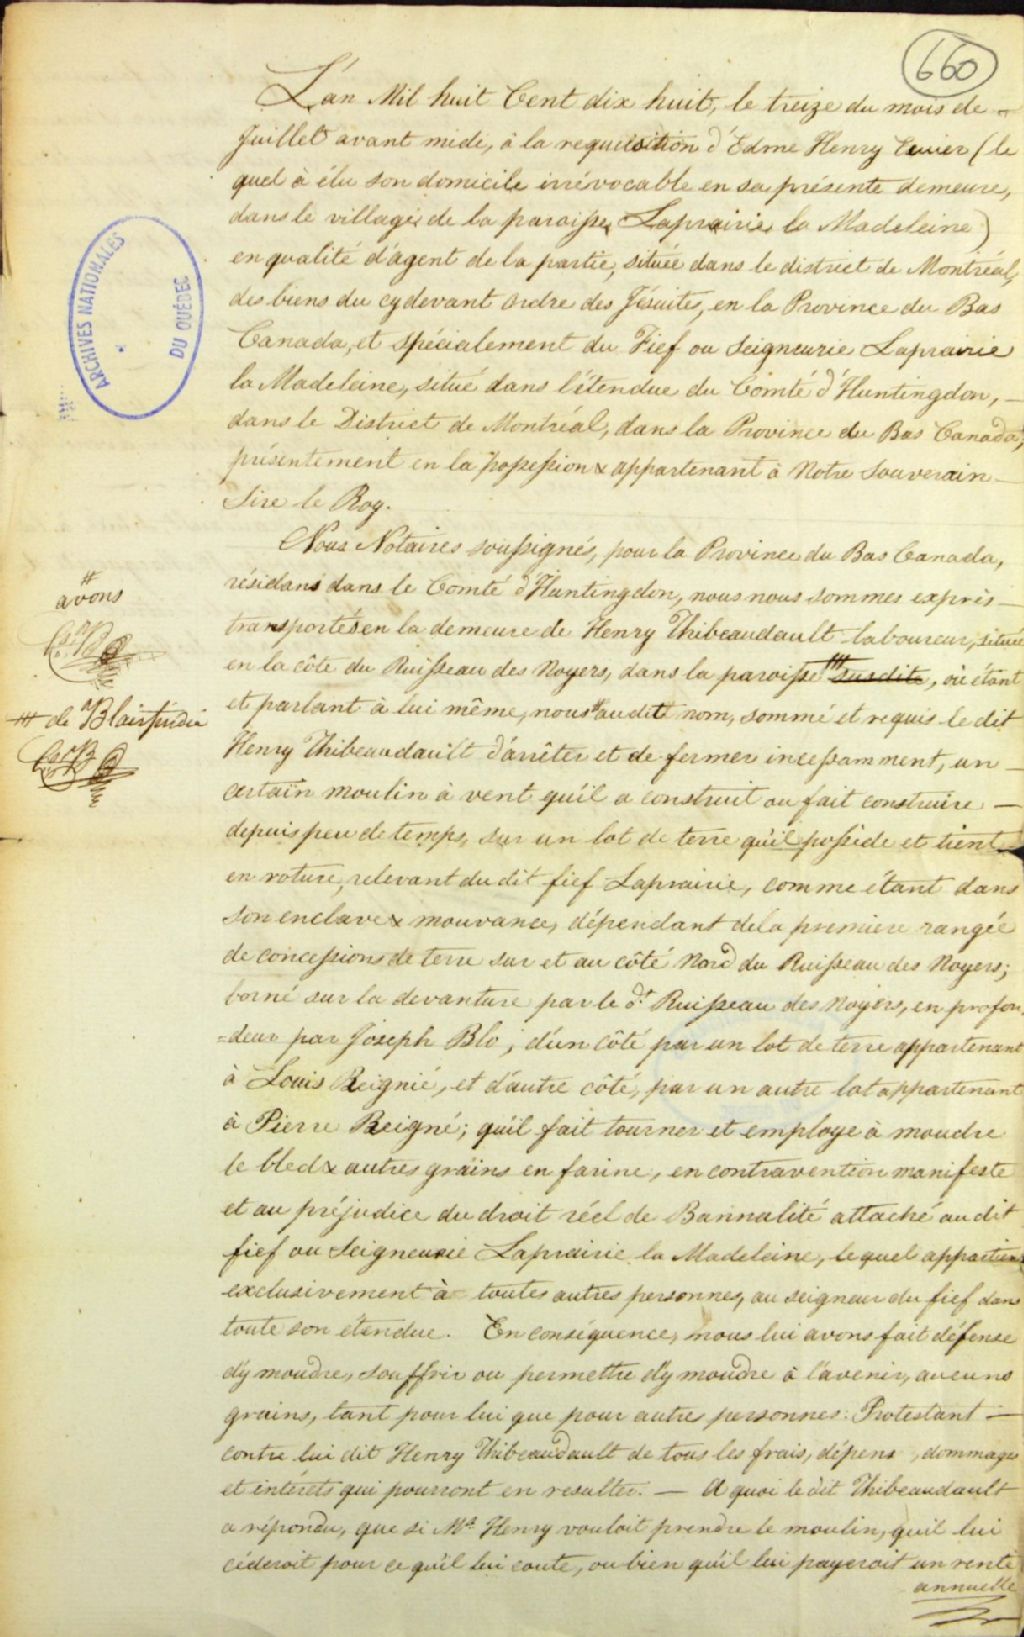 660
L'an Mil huit Cent dix huit, le treize du mois de
Juillet avant midi, à la requisition d'Edme Henry Ecuier (le
quel à élu son domicile irrévocable en sa présente demeure,
dans le village de la paroisse Laprairie la Madeleine)
en qualité d'agent de la partie, située dans le district de Montréal,
des biens du cydevant ordre des Jésuites, en la Province du Bas
Canada, et spécialement du Fief ou Seigneurie Laprairie
la Madeleine, situé dans l'étendue du Comté d'Huntingdon,
dans le District de Montréal, dans la Province du Bas Canada,
présentement en la possession & appartenant à Notre Souverain
Sire le Roy.
ARCHIVES NATIONALES
DU QUÉBEC
Nous Notaires soussignés, pour la Province du Bas Canada,
résidans dans le Comté d'Huntingdon, nous nous sommes exprès
transportés en la demeure de Henry Thibeaudault laboureur, située
en la côte du Ruisseau des Noyers, dans la paroisse # susdite, où étant
et parlant à lui même, nous # audit nom, sommé et requis le dit
Henry Thibeaudault d'arrêter et de fermer incessamment, un
certain moulin à vent qu'il a construit ou fait construire
depuis peu de temps, sur un lot de terre qu'il posside et tient
en roture, relevant du dit fief Laprairie, comme étant dans
son enclave & mouvance, dépendant de la premiere rangée
de concessions de terre sur et au côté Nord du Ruisseau des Noyers;
borné sur la devanture par le dt. Ruisseau des Noyers, en profon
=deur par Joseph Blo; d'un côté par un lot de terre appartenant
à Louis Reignié, et d'autre côté, par un autre lot appartenant
à Pierre Reigné; qu'il fait tourner et employe à moudre
le bled & autres grains en farine, en contravention manifeste
et au préjudice du droit réel de Bannalité attaché au dit
fief ou Seigneurie Laprairie la Madeleine, lequel appartient
exclusivement à toutes autres personnes, au seigneur du fief dans
toute son étendue. En conséquence, nous lui avons fait défense
d'y moudre, souffrir ou permettre d'y moudre à l'avenir, aucuns
grains, tant pour lui que pour autres personnes: Protestant
contre lui dit Henry Thibeaudault de tous les frais, dépens, dommages
et intérêts qui pourront en resulter. — A quoi le dit Thibeaudault
a répondu, que si Mr. Henry vouloit prendre le moulin, qu'il lui
céderoit pour ce qu'il lui coute, ou bien qu'il lui payeroit un rente
annuelle
# avons
# de Blairfindie